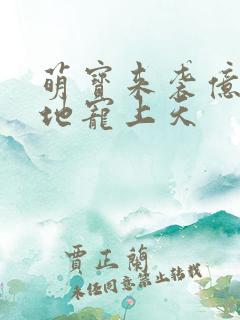 萌寳来袭億
地寵上天
賈正蘭
未经同意禁止转载